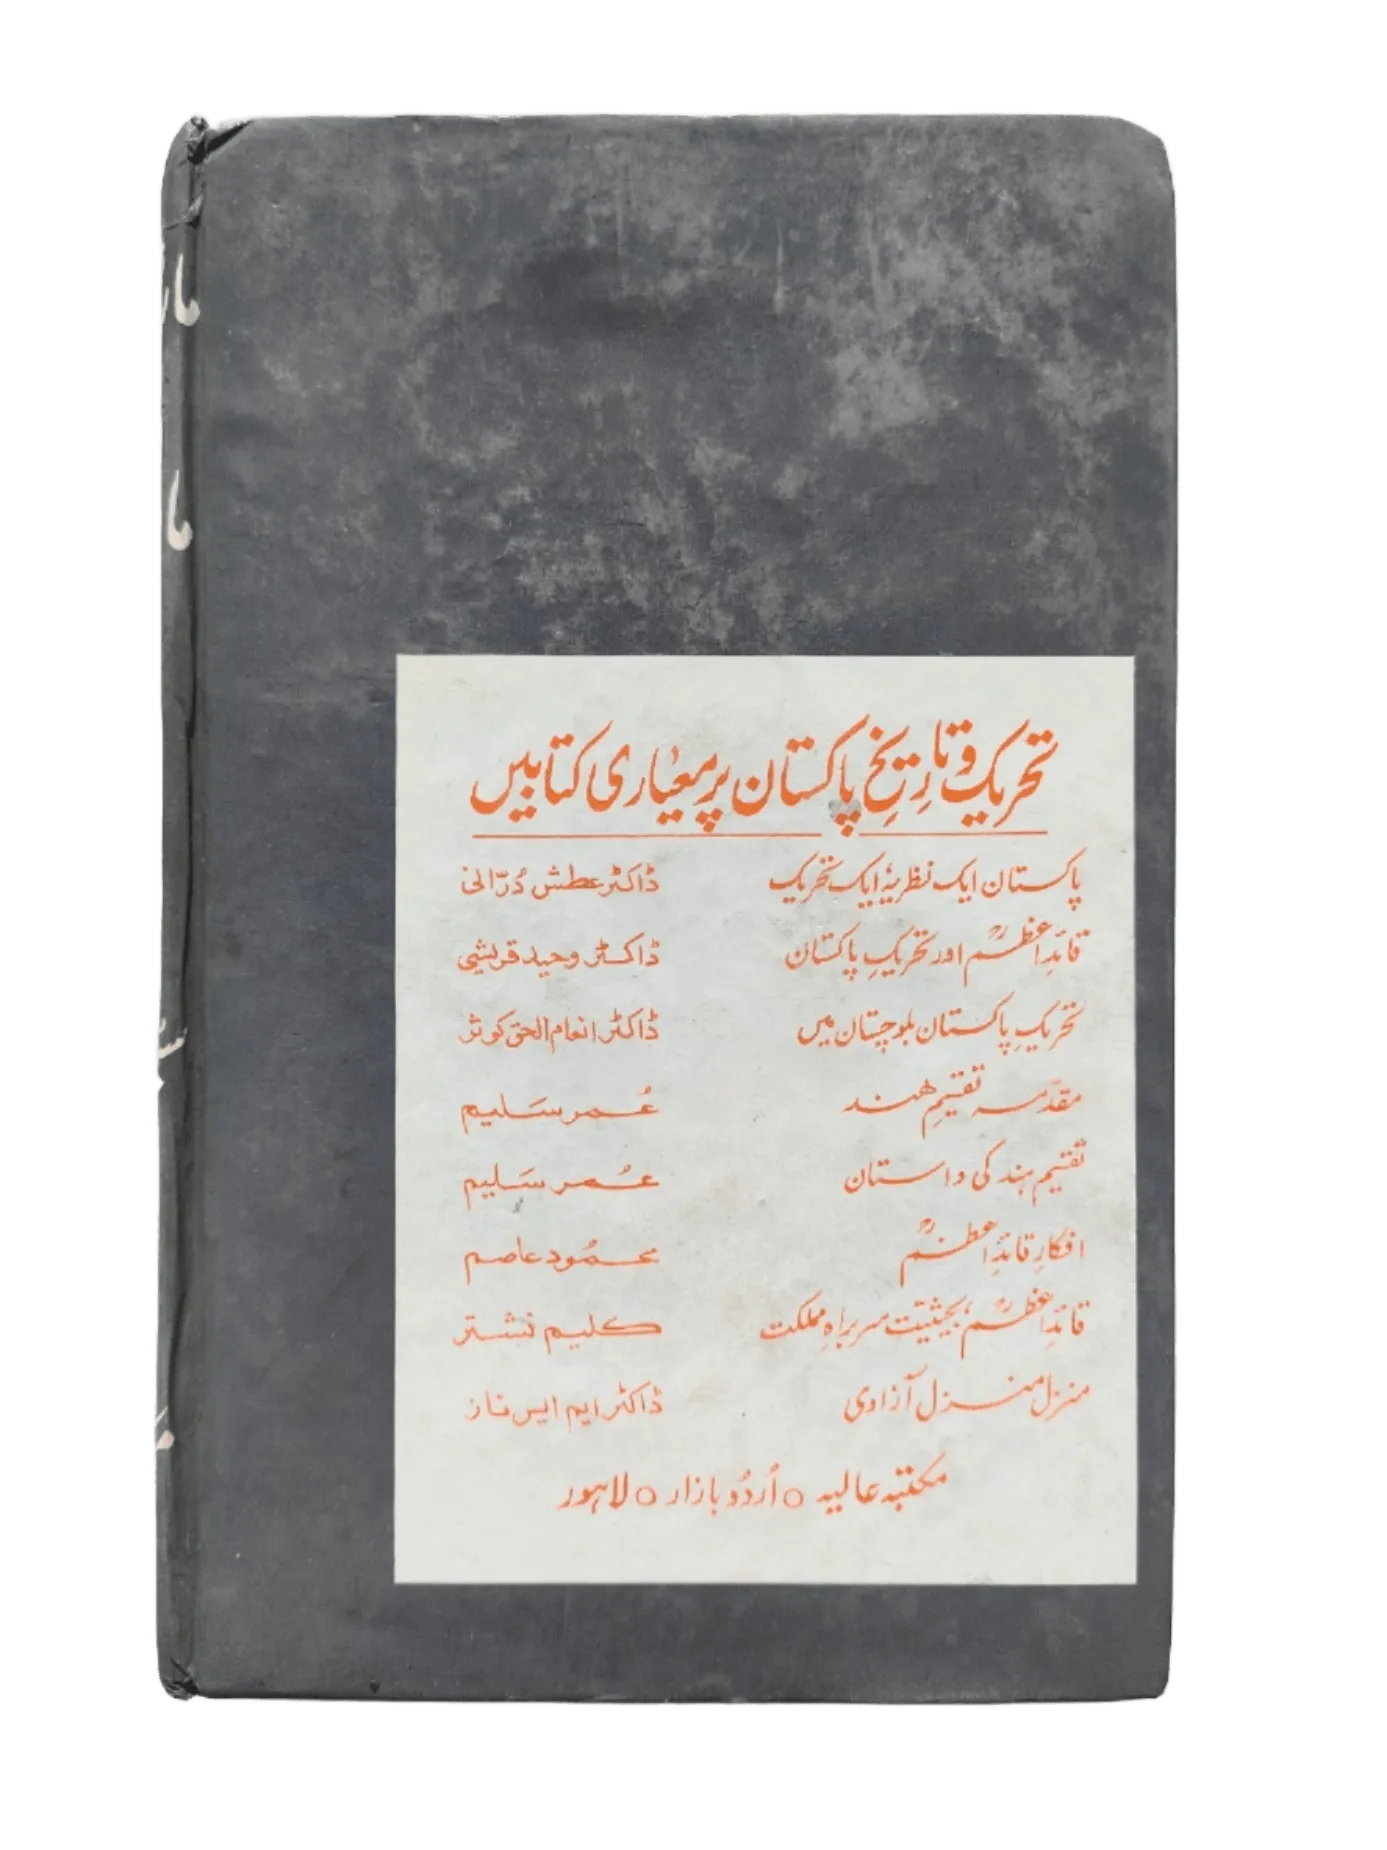 تحریک و تاریخِ پاکستان پر معیاری کتابیں
پاکستان ایک نظریہ ایک تحریک ڈاکٹر عطش دُرّانی
قائدِ اعظمؒ اور تحریکِ پاکستان ڈاکٹر وحید قریشی
تحریکِ پاکستان بلوچستان میں ڈاکٹر انعام الحق کوثر
مقدمہ تقسیمِ ہند عُمر سَلیم
تقسیم ہند کی داستان عُمر سَلیم
افکارِ قائدِ اعظمؒ محمُود عاصم
قائدِ اعظمؒ، بحیثیّت سربراہِ مملکت کلیم نشتر
منزل منزل آزادی ڈاکٹر ایم ایس ناز
مکتبہ عالیہ ○ اُردُو بازار ○ لاہور